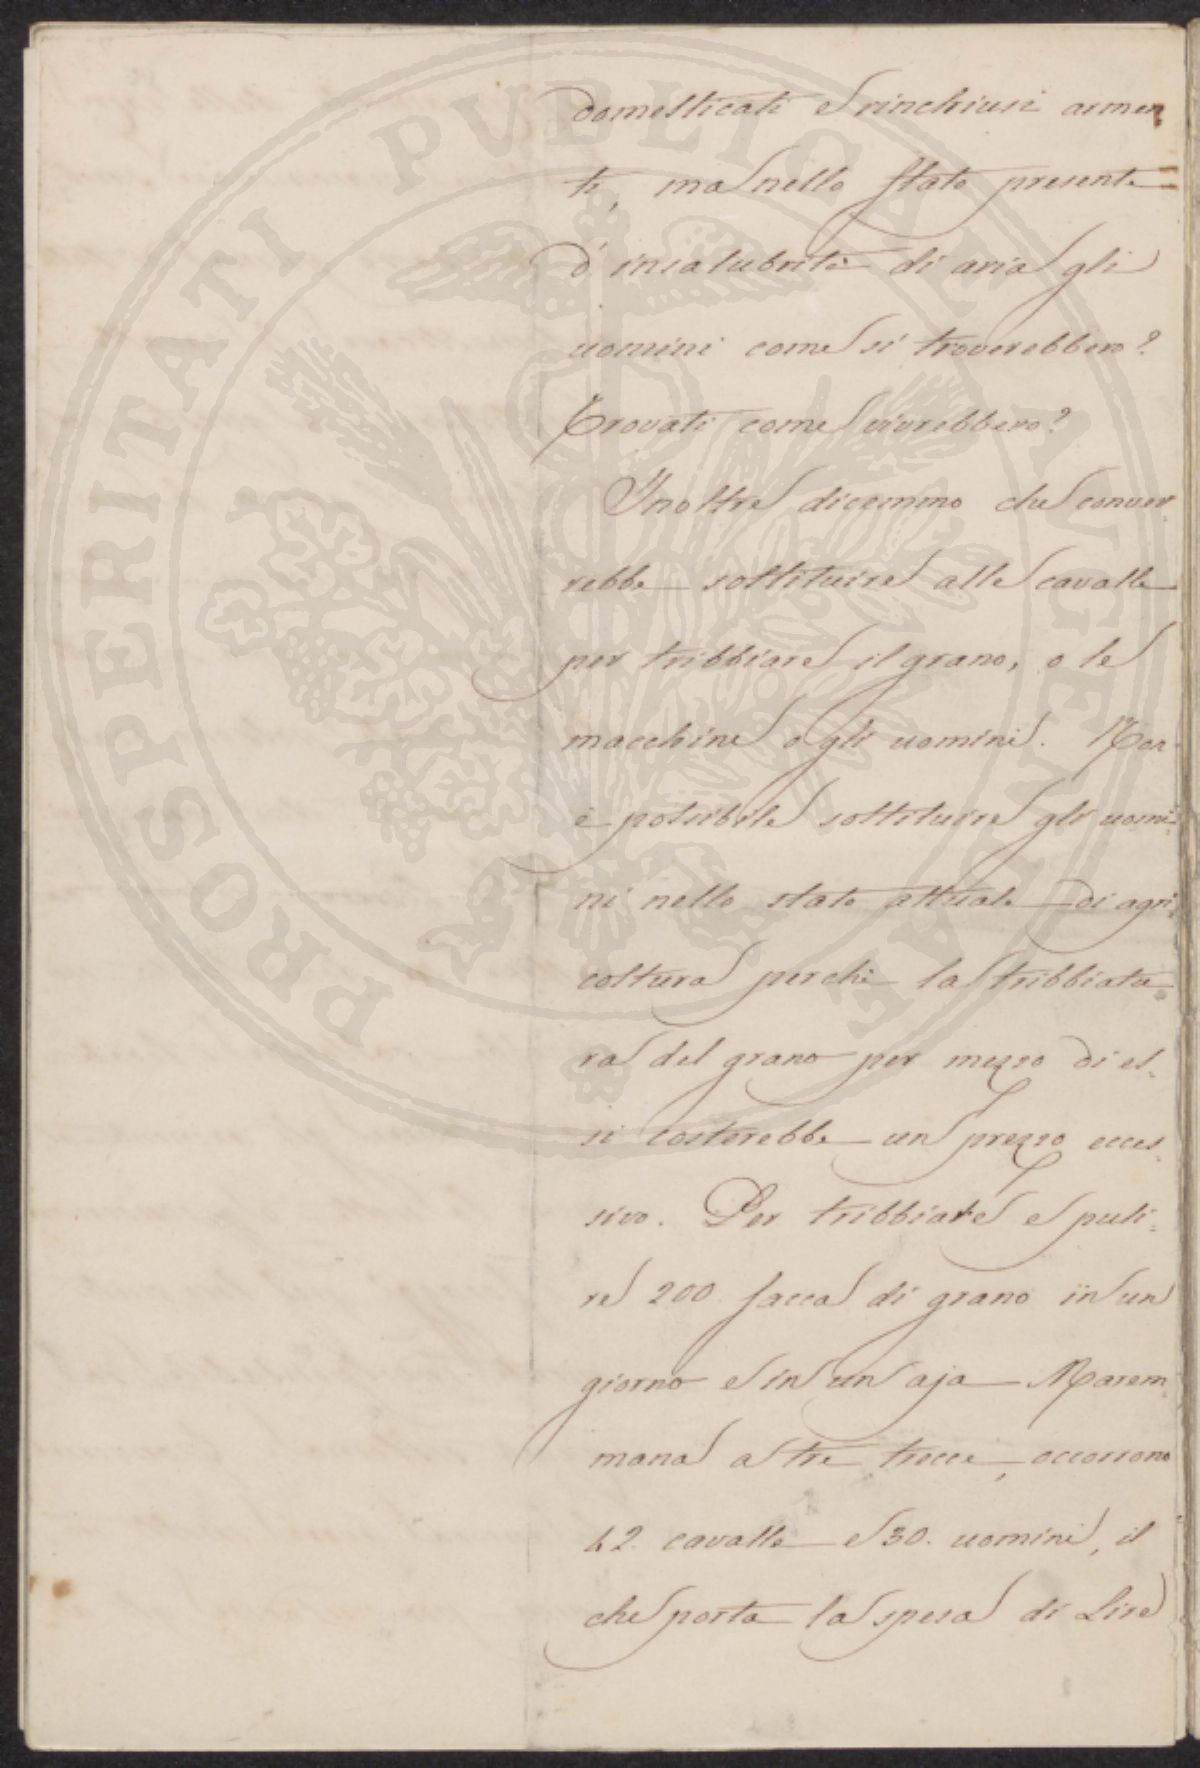 domesticati e rinchiusi armen
ti, ma nello stato presente
d'insalubrità di aria gli
uomini come si troverebbero?
Trovati come vivrebbero?
Inoltre dicemmo che conver
rebbe sostituire alle cavalle
per tribbiare il grano, o le
macchine o gli uomini. Non
è possibile sostituire gli uomi=
ni nello stato attuale di agri=
coltura perchè la tribbiatu
ra del grano per mezzo di es=
si costerebbe un prezzo ecces=
sivo. Per tribbiare e puli=
re 200. sacca di grano in un
giorno e in un aja Marem
mana a tre trecce, occorrono
42. cavalle e 30. uomini, il
che porta la spesa di Lire
PROSPERITATI PVBLICAE AVGENDAE